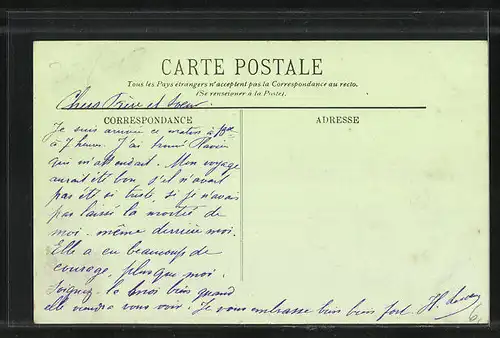 CARTE POSTALE
Tous les Pays étrangers n'acceptent pas la Correspondance au recto.
(Se renseigner à la Poste).
Chers Frère et Soeur
CORRESPONDANCE
ADRESSE
Je suis arrivée ce matin à
à 7 heures. J'ai trouvé
qui m'attendait. Mon voyage
aurait été bon s'il n'avait
pas été si triste, si je n'avais
pas laissé la moitié de
moi-même derrière moi.
Elle a eu beaucoup de
courage, plus que moi.
Soignez-la bien quand
elle viendra vous voir. Je vous embrasse bien bien fort. H.
6